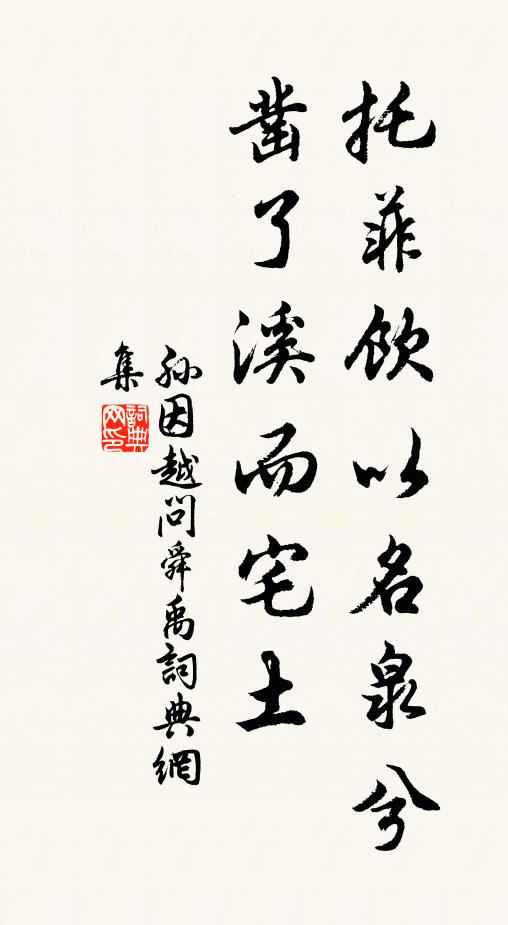 托菲飲以名泉兮
凿了溪而宅土
孫因越問舜禹詞典網
集
詞典
网印